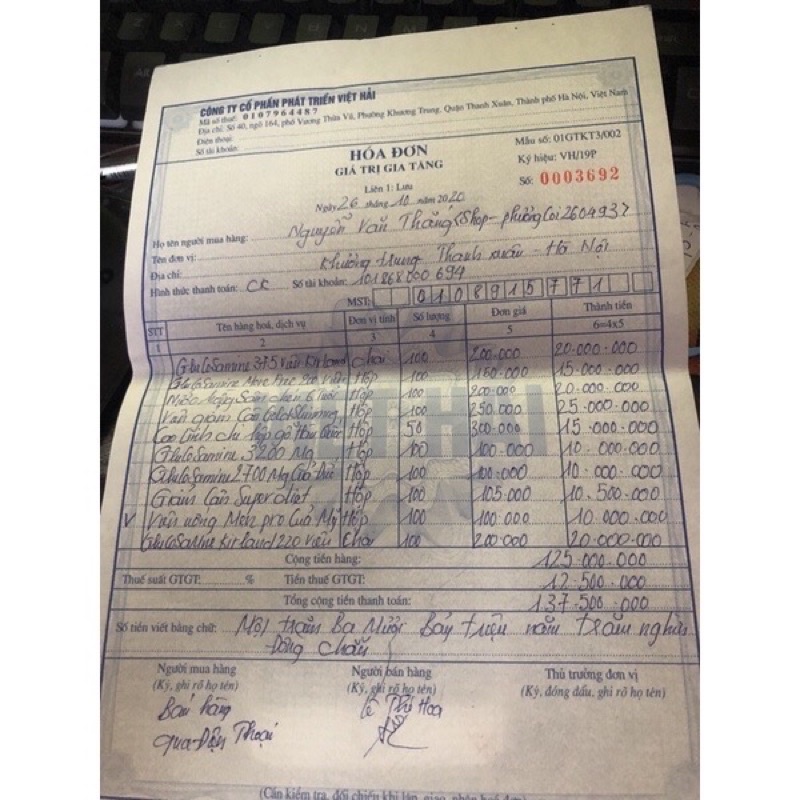 CÔNG TY CỔ PHẦN PHÁT TRIỂN VIỆT HẢI
Mã số thuế: 0107964487
Địa chỉ: Số 40, ngõ 164, phố Vương Thừa Vũ, Phường Khương Trung, Quận Thanh Xuân, Thành phố Hà Nội, Việt Nam
Điện thoại:
Số tài khoản:
HÓA ĐƠN
GIÁ TRỊ GIA TĂNG
Liên 1: Lưu
Ngày 26 tháng 10 năm 2020
Mẫu số: 01GTKT3/002
Ký hiệu: VH/19P
Số: 0003692
Họ tên người mua hàng: Nguyễn Văn Thắng (Shop-phuongloi260493)
Tên đơn vị:
Địa chỉ: Khương trung Thanh xuân - Hà Nội
Hình thức thanh toán: CK Số tài khoản: 101868000694
MST: 0108915771
STT Tên hàng hoá, dịch vụ Đơn vị tính Số lượng Đơn giá Thành tiền
1 2 3 4 5 6=4x5
GluCoSamine 375 viên Kirland chai 100 200.000 20.000.000
GluCoSamine Hộp 100 150.000 15.000.000
Hộp 100 200.000 20.000.000
Viên giảm Cân Gold Slimming Hộp 100 250.000 25.000.000
Cao linh chi hộp gỗ Hàn Quốc Hộp 50 300.000 15.000.000
GluCoSamine 3200 Mg Hộp 100 100.000 10.000.000
GluCoSamine 2700 Mg Của Hộp 100 100.000 10.000.000
Giảm Cân Super diet Hộp 100 105.000 10.500.000
V Viên uống Men pro Của Mỹ Hộp 100 100.000 10.000.000
GluCoSamine Kirland 220 viên Chai 100 200.000 20.000.000
Cộng tiền hàng: 125.000.000
Thuế suất GTGT: % Tiền thuế GTGT: 12.500.000
Tổng cộng tiền thanh toán: 137.500.000
Số tiền viết bằng chữ: Một trăm Ba Mươi Bảy triệu năm trăm nghìn
Đồng chẵn
Người mua hàng Người bán hàng Thủ trưởng đơn vị
(Ký, ghi rõ họ tên) (Ký, ghi rõ họ tên) (Ký, đóng dấu, ghi rõ họ tên)
Bán hàng Lê Thị Hoa
qua Điện Thoại
(Cần kiểm tra, đối chiếu khi lập, giao, nhận hoá đơn)